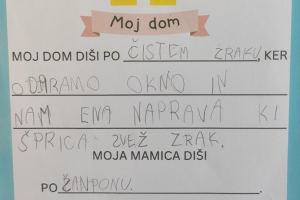 Moj dom
MOJ DOM DIŠI PO ČISTEM ZRAKU, KER
ODPRAMO OKNO IN
NAM ENA NAPRAVA KI
ŠPRICA ZVEŽ ZRAK.
MOJA MAMICA DIŠI
PO ŽANPONU.